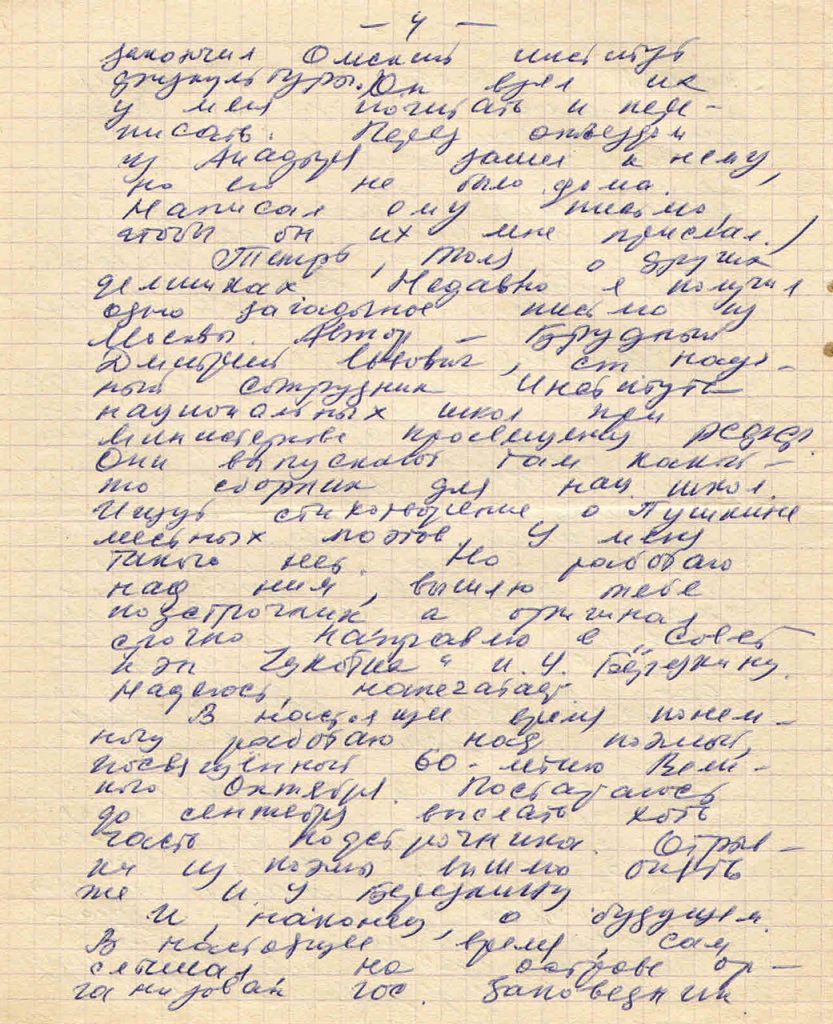 — 4 —
закончил Омский институт
физкультуры. Он взял их
у меня почитать и пере-
писать. Перед отъездом
из Анадыря зашел к нему,
но его не было дома.
Написал ему письмо,
чтобы он их мне прислал.)
Теперь, Толя, о других
делишках. Недавно я получил
одно загадочное письмо из
Москвы. Автор — Брудный
Дмитрий Львович, ст. науч-
ный сотрудник Института
национальных школ при
Министерстве просвещения РСФСР.
Они выпускают там какой-
то сборник для нац. школ.
Ищут стихотворение о Пушкине
местных поэтов. У меня
такого нет. Но работаю
над ним, вышлю тебе
подстрочник, а оригинал
срочно направлю в „Совет-
кэн Чукотка" И. У. Березкину.
Надеюсь, напечатает.
В настоящее время понем-
ногу работаю над поэмой,
посвящённой 60-летию Вели-
кого Октября. Постараюсь
до сентября выслать хоть
часть подстрочника. Отрыв-
ки из поэмы вышлю опять
же И. У. Березкину
И, наконец, о будущем.
В настоящее время, сам
слышал, на острове ор-
ганизован гос. заповедник